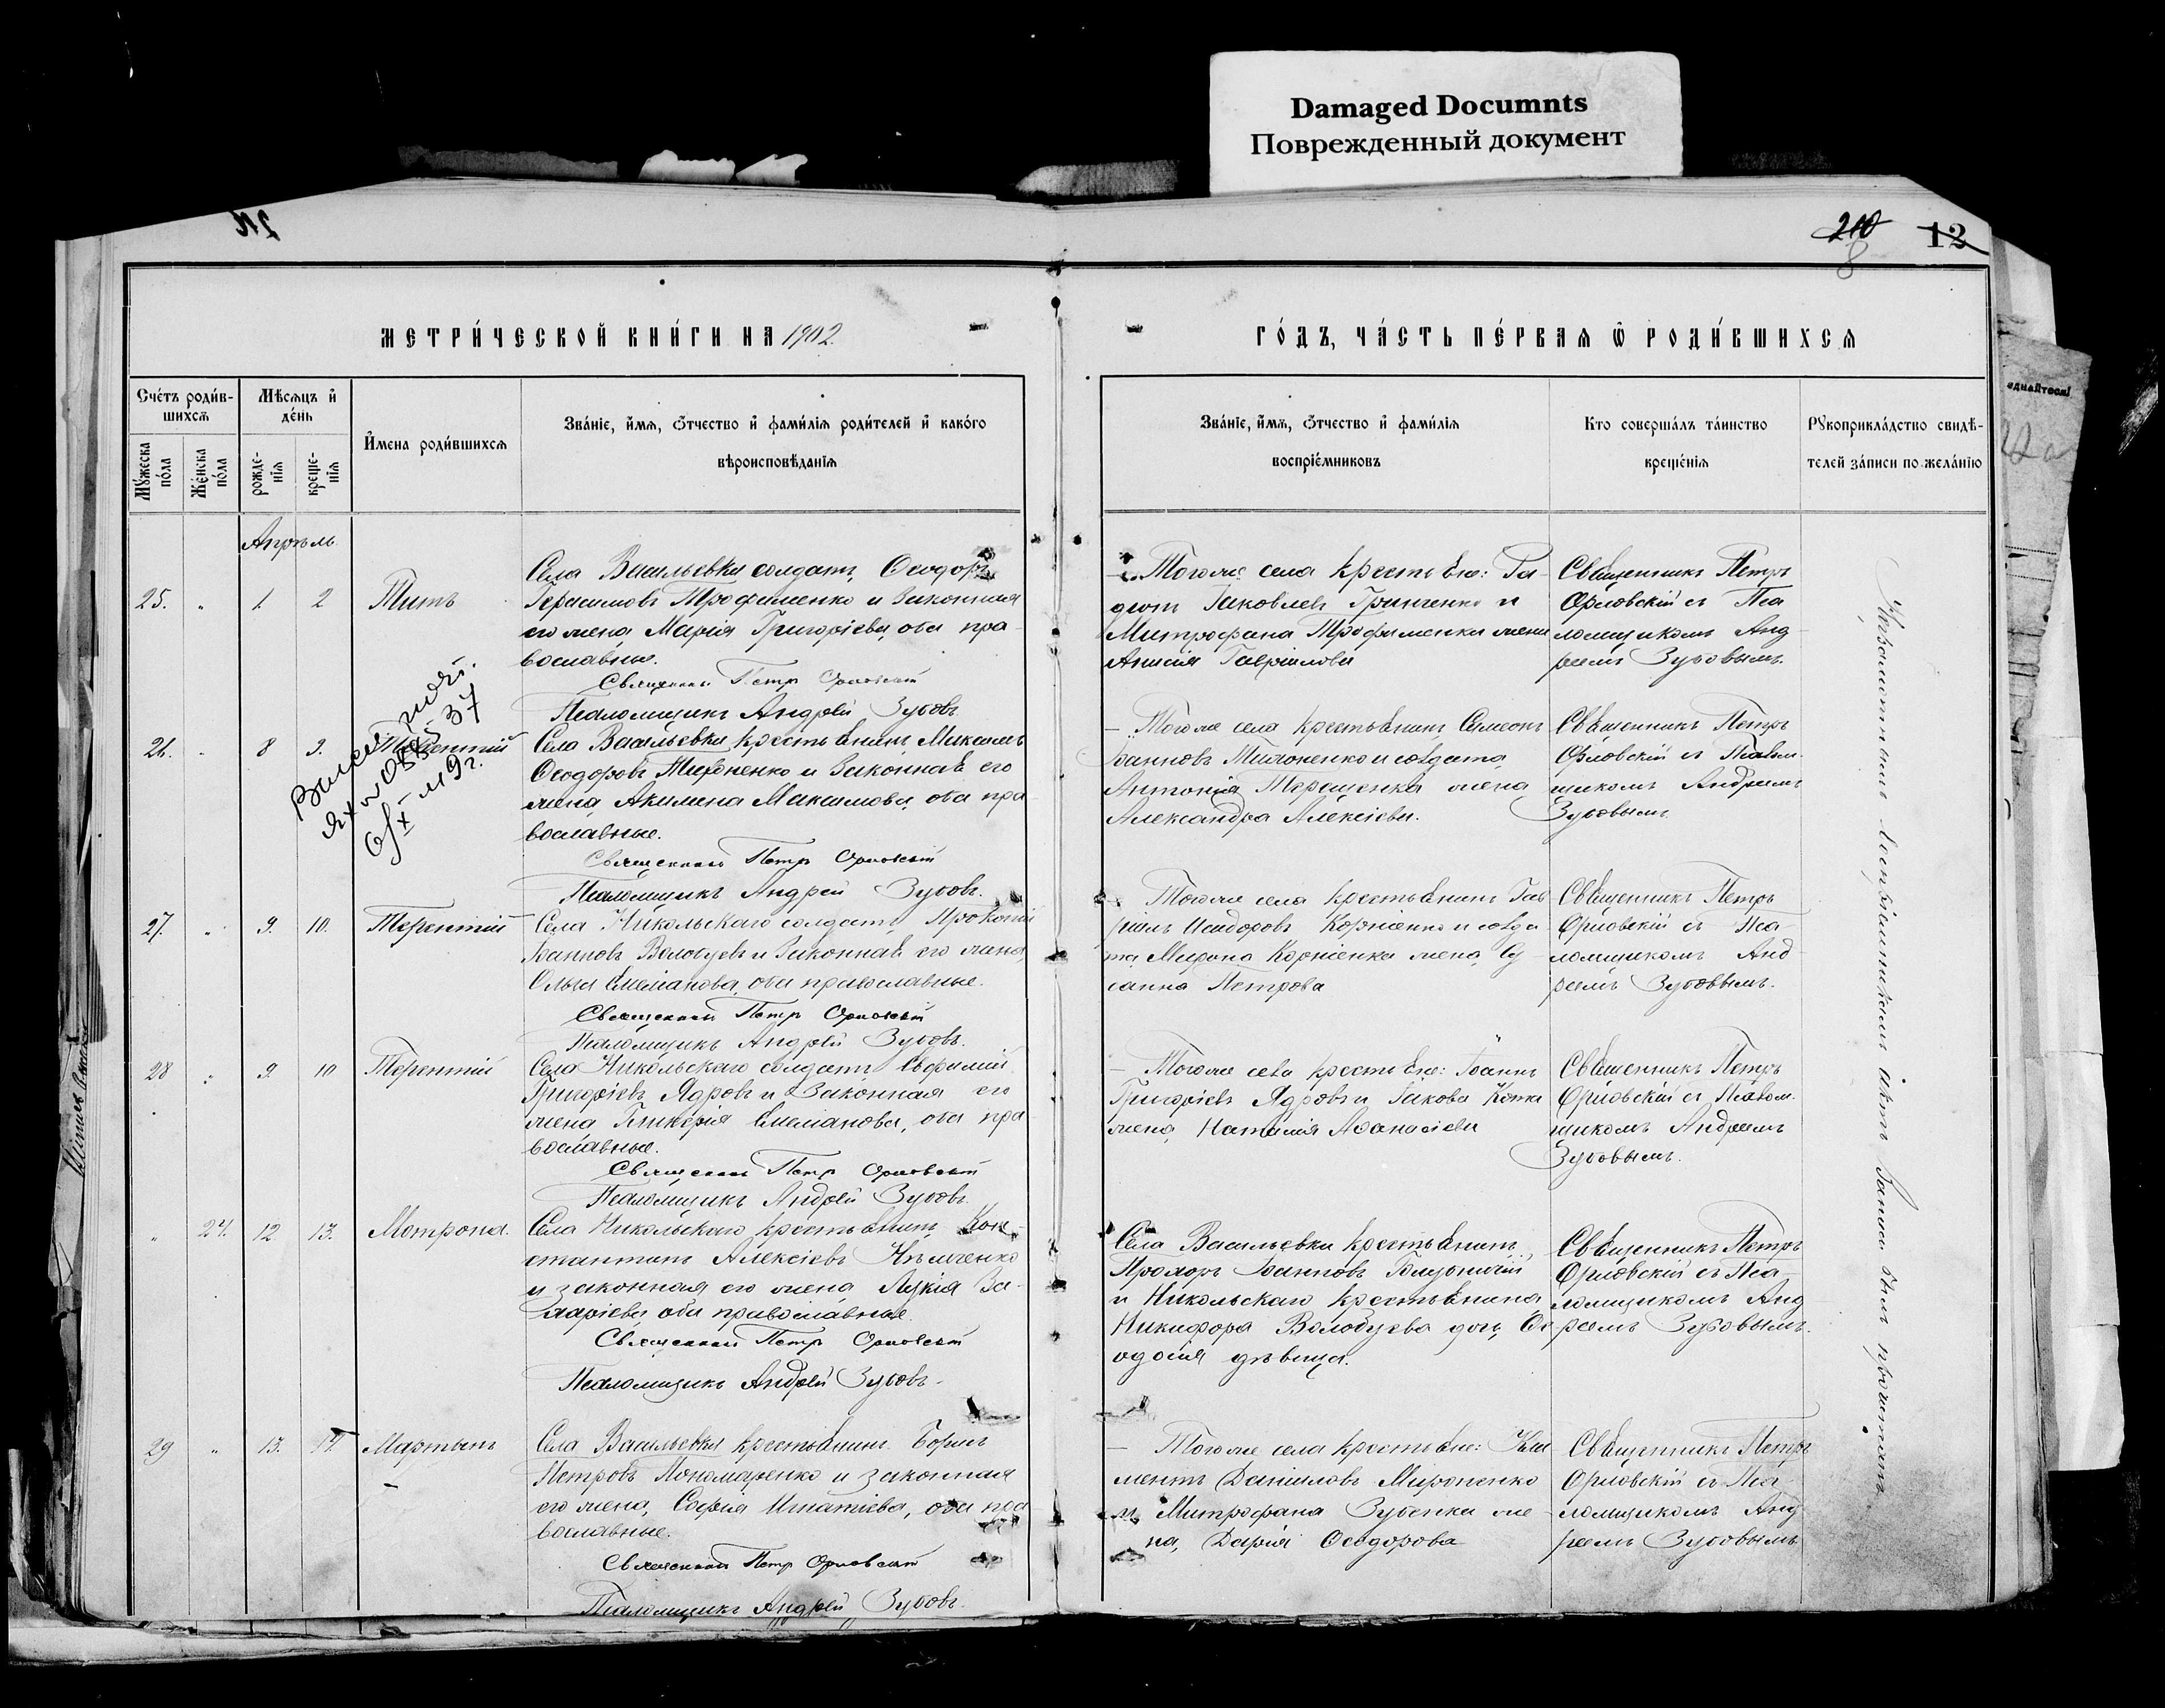 Damaged Documnts
Поврежденный документ
210
12
8
МЕТРИ́ЧЕСКОЙ КНИ́ГИ НА 1902
ГО́ДЪ, ЧА́СТЬ ПЕ́РВАЯ Ѿ РОДИ́ВШИХСЯ
Сче́тъ роди́в-
шихся
Мѣсяцъ и
де́нь
Мꙋжеска по́ла
Же́нска по́ла
рожде-
нія
креще-
нія
И҆́мена роди́вшихся
Зва́ніе, и҆́мя, ѻ҆́тчество и҆ фами́лія роди́телей и҆ како́го
вѣроисповѣ́данія
Зва́ніе, и҆́мя, ѻ҆́тчество и҆ фами́лія
воспріе́мниковъ
Кто соверша́лъ та́инство
креще́нія
Рꙋкоприкла́дство свидѣ́-
телей за́писи по жела́нію
Апрѣль
25. „ 1. 2 Титъ
Села Васильевки солдатъ, Ѳеодоръ
Герасимовъ Трофименко и законная
его жена Марія Григоріева, оба пра-
вославные.
Священникъ Петръ Орловскій
Псаломщикъ Андрей Зубовъ
Тогоже села крестьяне:
Іаковлевъ Гринченко и
Митрофана Трофименка жена
Анисія Гавріилова
Священникъ Петръ
Орловскій съ Пса-
ломщикомъ Анд-
реемъ Зубовымъ.
26. „ 8 9. Терентій
Села Васильевки крестьянинъ Максимъ
Ѳеодоровъ Тихоненко и законная его
жена, Акилина Максимова, оба пра
вославные.
Священникъ Петръ Орловскій
Псаломщикъ Андрей Зубовъ.
Тогоже села крестьянинъ Симеонъ
Іоанновъ Тихоненко и солдата
Антонія Терещенка жена
Александра Алексіева.
Священникъ Петръ
Орловскій съ Псалом-
щикомъ Андреемъ
Зубовымъ
27. „ 9. 10. Терентій
Села Никольскаго солдатъ Прокопій
Іоанновъ Волобуевъ и законная его жена,
Ольга Емеліанова, оба православные.
Священникъ Петръ Орловскій
Псаломщикъ Андрей Зубовъ.
Тогоже села крестьянинъ Гав
ріилъ Исидоровъ Корніенко и солда
та, Мирона Корніенка жена, Су-
санна Петрова
Священникъ Петръ
Орловскій съ Пса-
ломщикомъ Анд-
реемъ Зубовымъ.
28 „ 9. 10 Терентій
Села Никольскаго солдатъ Евфимій
Григоріевъ Ядровъ и законная его
жена Гликерія Емеліанова, оба пра
вославные.
Священникъ Петръ Орловскій
Псаломщикъ Андрей Зубовъ.
Тогоже села крестьяне: Іоаннъ
Григоріевъ Ядровъ и Іакова
жена, Наталія Аѳанасіева
Священникъ Петръ
Орловскій съ Псалом-
щикомъ Андреемъ
Зубовымъ.
„ 24. 12 13. Матрона.
Села Никольскаго крестьянинъ, Кон-
стантинъ Алексіевъ
и законная его жена Лукія За-
харіева, оба православные.
Священникъ Петръ Орловскій
Псаломщикъ Андрей Зубовъ.
Села Васильевки крестьянинъ,
Прохоръ Іоанновъ
и Никольскаго крестьянина,
Никифора Волобуева дочь Ѳе
одосія дѣвица.
Священникъ Петръ
Орловскій съ Пса-
ломщикомъ Анд
реемъ Зубовымъ.
29 „ 13. 14. Мартинъ
Села Васильевки крестьянинъ Борисъ
Петровъ Пономаренко и законная
его жена, Софія Игнатіева, оба пра
вославные.
Священникъ Петръ Орловскій
Псаломщикъ Андрей Зубовъ.
Тогоже села крестьяне: Кли
ментъ Даніиловъ Мироненко
и Митрофана Зубенки же
на, Дарія Ѳеодорова
Священникъ Петръ
Орловскій съ Пса-
ломщикомъ Анд
реемъ Зубовымъ.
воспріемникамъ актъ записи былъ прочитанъ